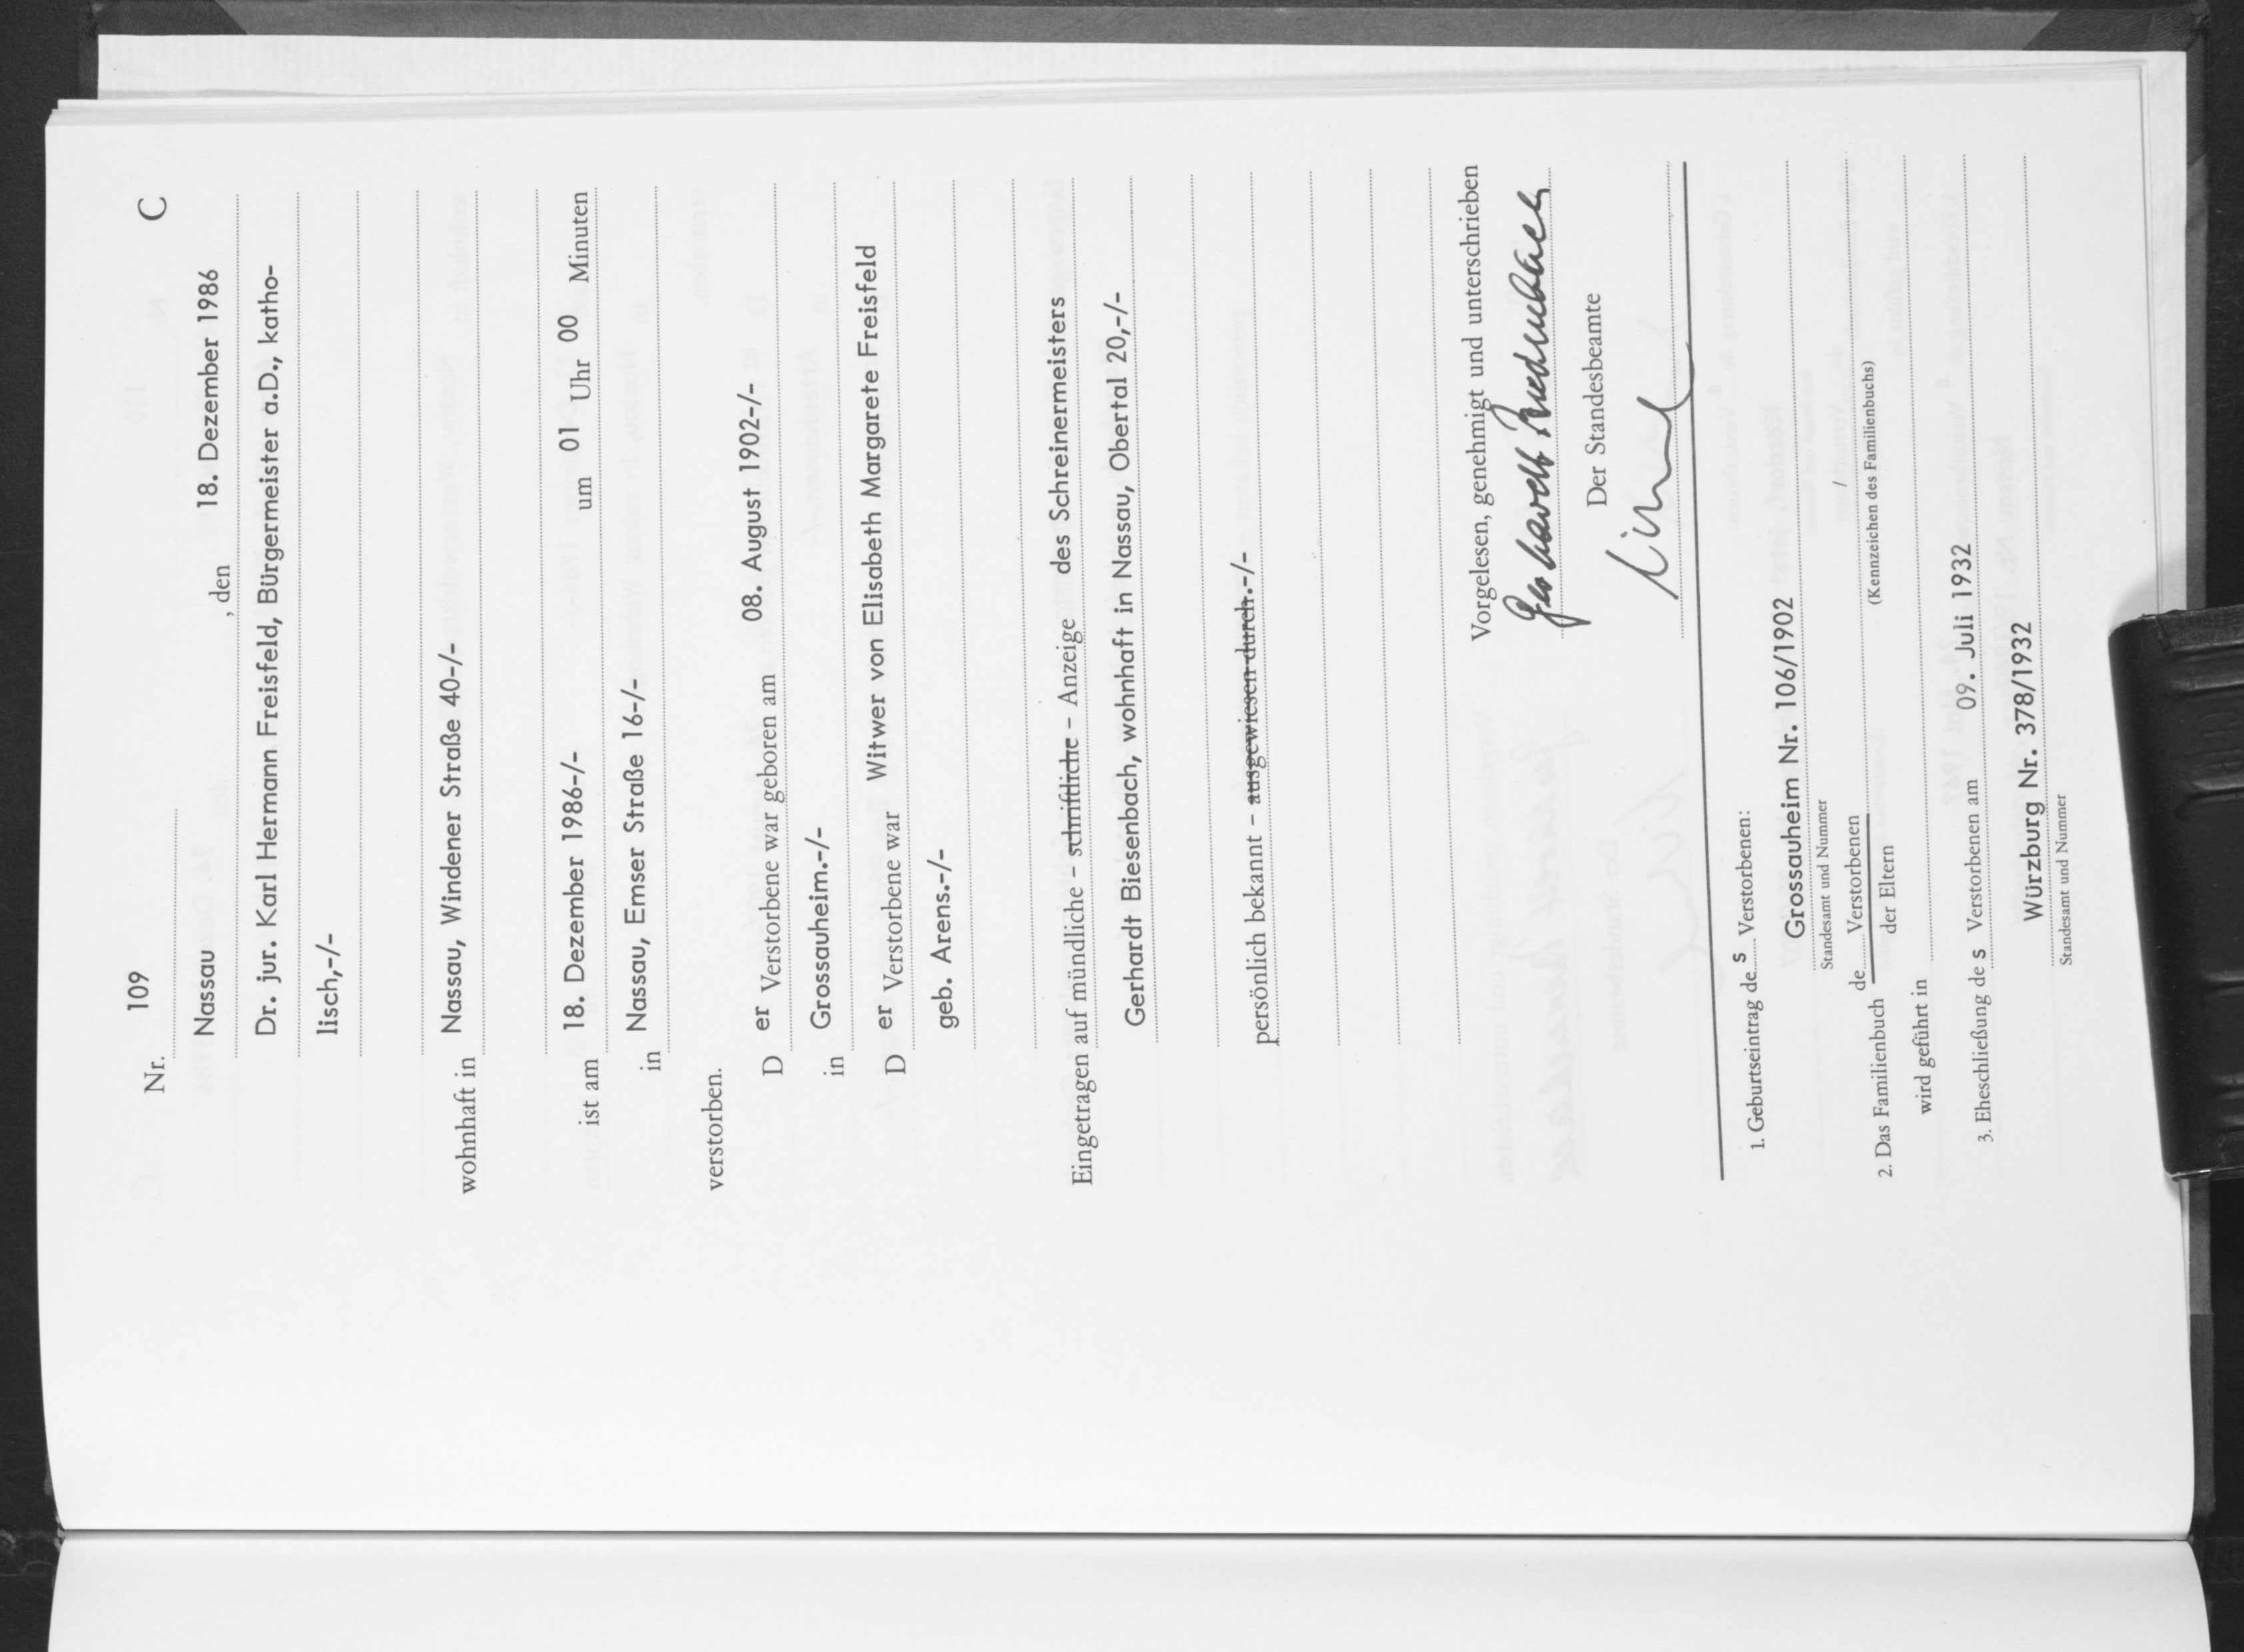 Nr. 109 C
Nassau , den 18. Dezember 1986
Dr. jur. Karl Hermann Freisfeld, Bürgermeister a.D., katho-
lisch,-/-
wohnhaft in Nassau, Windener Straße 40-/-
ist am 18. Dezember 1986-/- um 01 Uhr 00 Minuten
in Nassau, Emser Straße 16-/-
verstorben.
D er Verstorbene war geboren am 08. August 1902-/-
in Grossauheim.-/-
D er Verstorbene war Witwer von Elisabeth Margarete Freisfeld
geb. Arens.-/-
Eingetragen auf mündliche - schriftliche - Anzeige des Schreinermeisters
Gerhardt Biesenbach, wohnhaft in Nassau, Obertal 20,-/-
persönlich bekannt - ausgewiesen durch.-/-
Vorgelesen, genehmigt und unterschrieben
Gerhardt Biesenbach
Der Standesbeamte
1. Geburtseintrag des Verstorbenen:
Grossauheim Nr. 106/1902
Standesamt und Nummer
2. Das Familienbuch de Verstorbenen /
der Eltern (Kennzeichen des Familienbuchs)
wird geführt in
3. Eheschließung des Verstorbenen am 09. Juli 1932
Würzburg Nr. 378/1932
Standesamt und Nummer